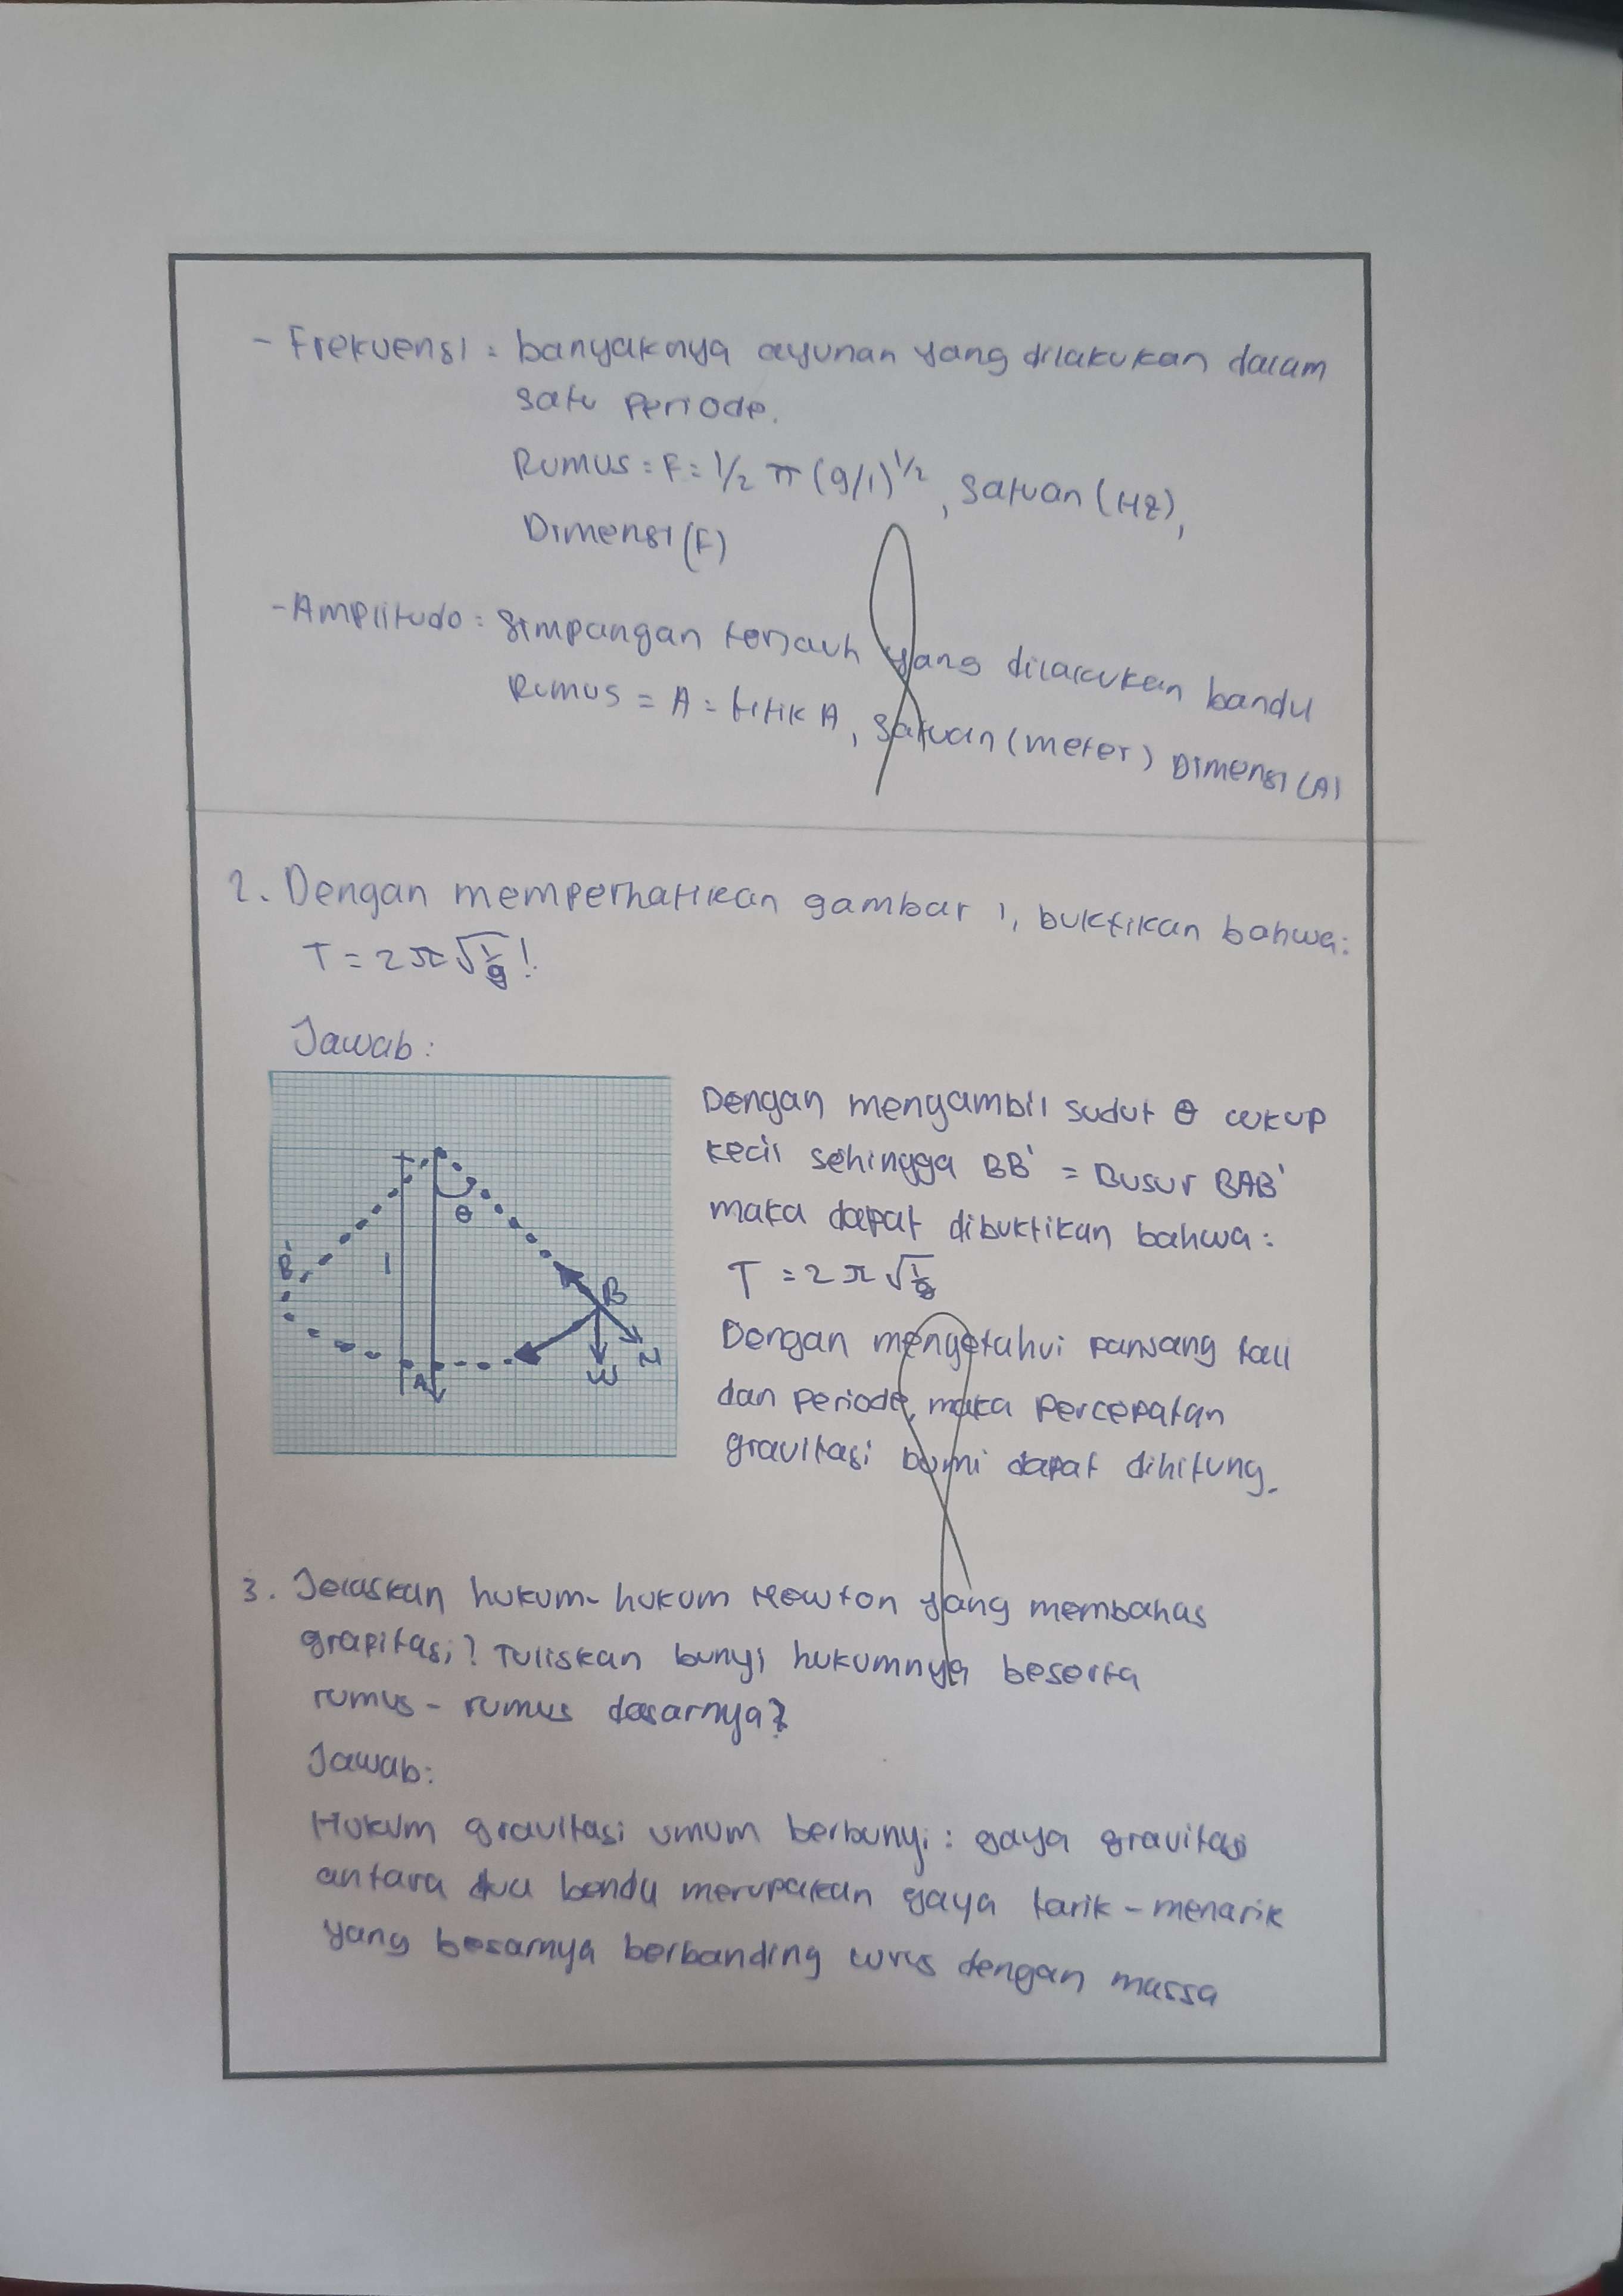 - Frekuensi : banyaknya ayunan yang dilakukan dalam
satu periode.
Rumus = F = 1/2 π (g/l)^1/2, satuan (Hz),
Dimensi (F)
- Amplitudo : simpangan terjauh yang dilakukan bandul
Rumus = A = titik A, satuan (meter) Dimensi (A)
2. Dengan memperhatikan gambar 1, buktikan bahwa:
T = 2π√l/g !
Jawab :
Dengan mengambil sudut θ cukup
kecil sehingga BB' = Busur BAB'
maka dapat dibuktikan bahwa :
T = 2π√l/g
Dengan mengetahui panjang tali
dan periode, maka percepatan
gravitasi bumi dapat dihitung.
θ
B'
l
B
A
W
N
3. Jelaskan hukum-hukum Newton yang membahas
grapitasi? Tuliskan bunyi hukumnya beserta
rumus-rumus dasarnya?
Jawab:
Hukum gravitasi umum berbunyi : gaya gravitasi
antara dua benda merupakan gaya tarik-menarik
yang besarnya berbanding lurus dengan massa